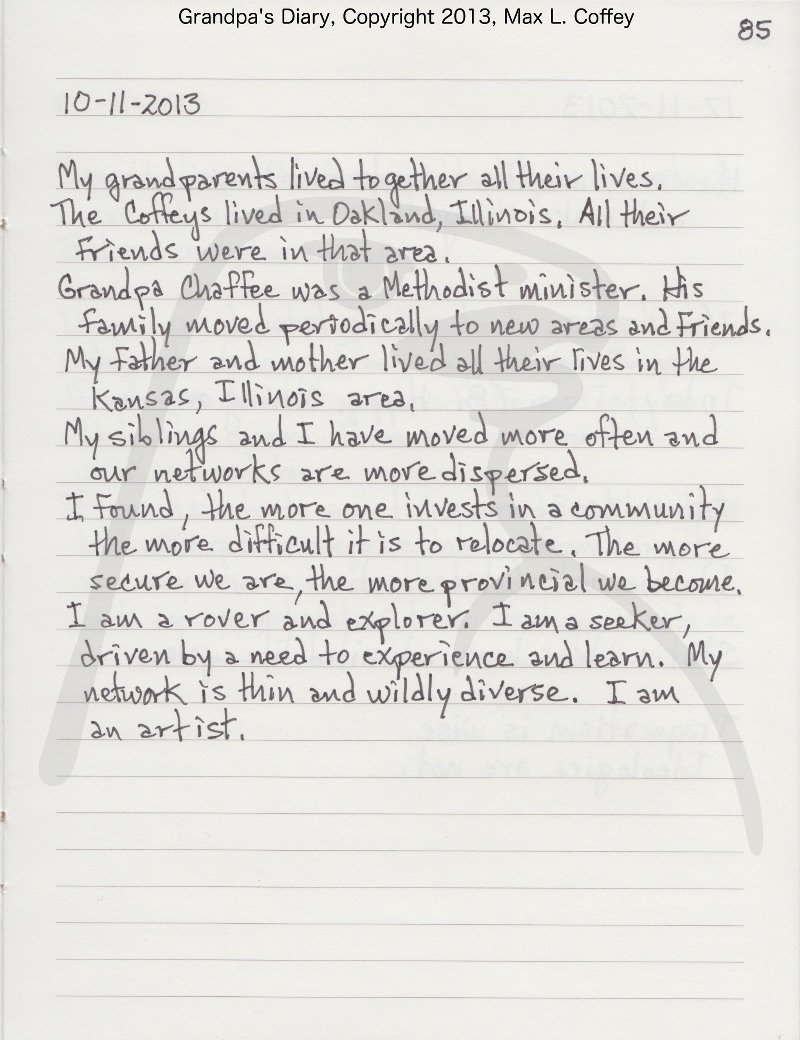 Grandpa's Diary, Copyright 2013, Max L. Coffey
85
10-11-2013
My grandparents lived together all their lives.
The Coffeys lived in Oakland, Illinois. All their
friends were in that area.
Grandpa Chaffee was a Methodist minister. His
family moved periodically to new areas and friends.
My father and mother lived all their lives in the
Kansas, Illinois area.
My siblings and I have moved more often and
our networks are more dispersed.
I found, the more one invests in a community
the more difficult it is to relocate. The more
secure we are, the more provincial we become.
I am a rover and explorer. I am a seeker,
driven by a need to experience and learn. My
network is thin and wildly diverse. I am
an artist.